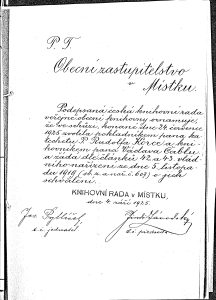 P. T.
Obecní zastupitelstvo
v Místku.
Podepsaná česká knihovní rada
veřejné obecní knihovny oznamuje,
že ve schůzi, konané dne 24. července
1925 zvolila pokladníkem pana ka-
techetu P. Rudolfa Korce, a kni-
hovníkem pana Václava Cablíu
a žádá dle článků 42. a 43. vlád-
ního nařízení ze dne 5. listopa-
du 1919 (sb. z. a nař. č. 607) o jich
schválení.
KNIHOVNÍ RADA v MÍSTKU,
dne 4. září 1925.
t. č. jednatel
t. č. předseda